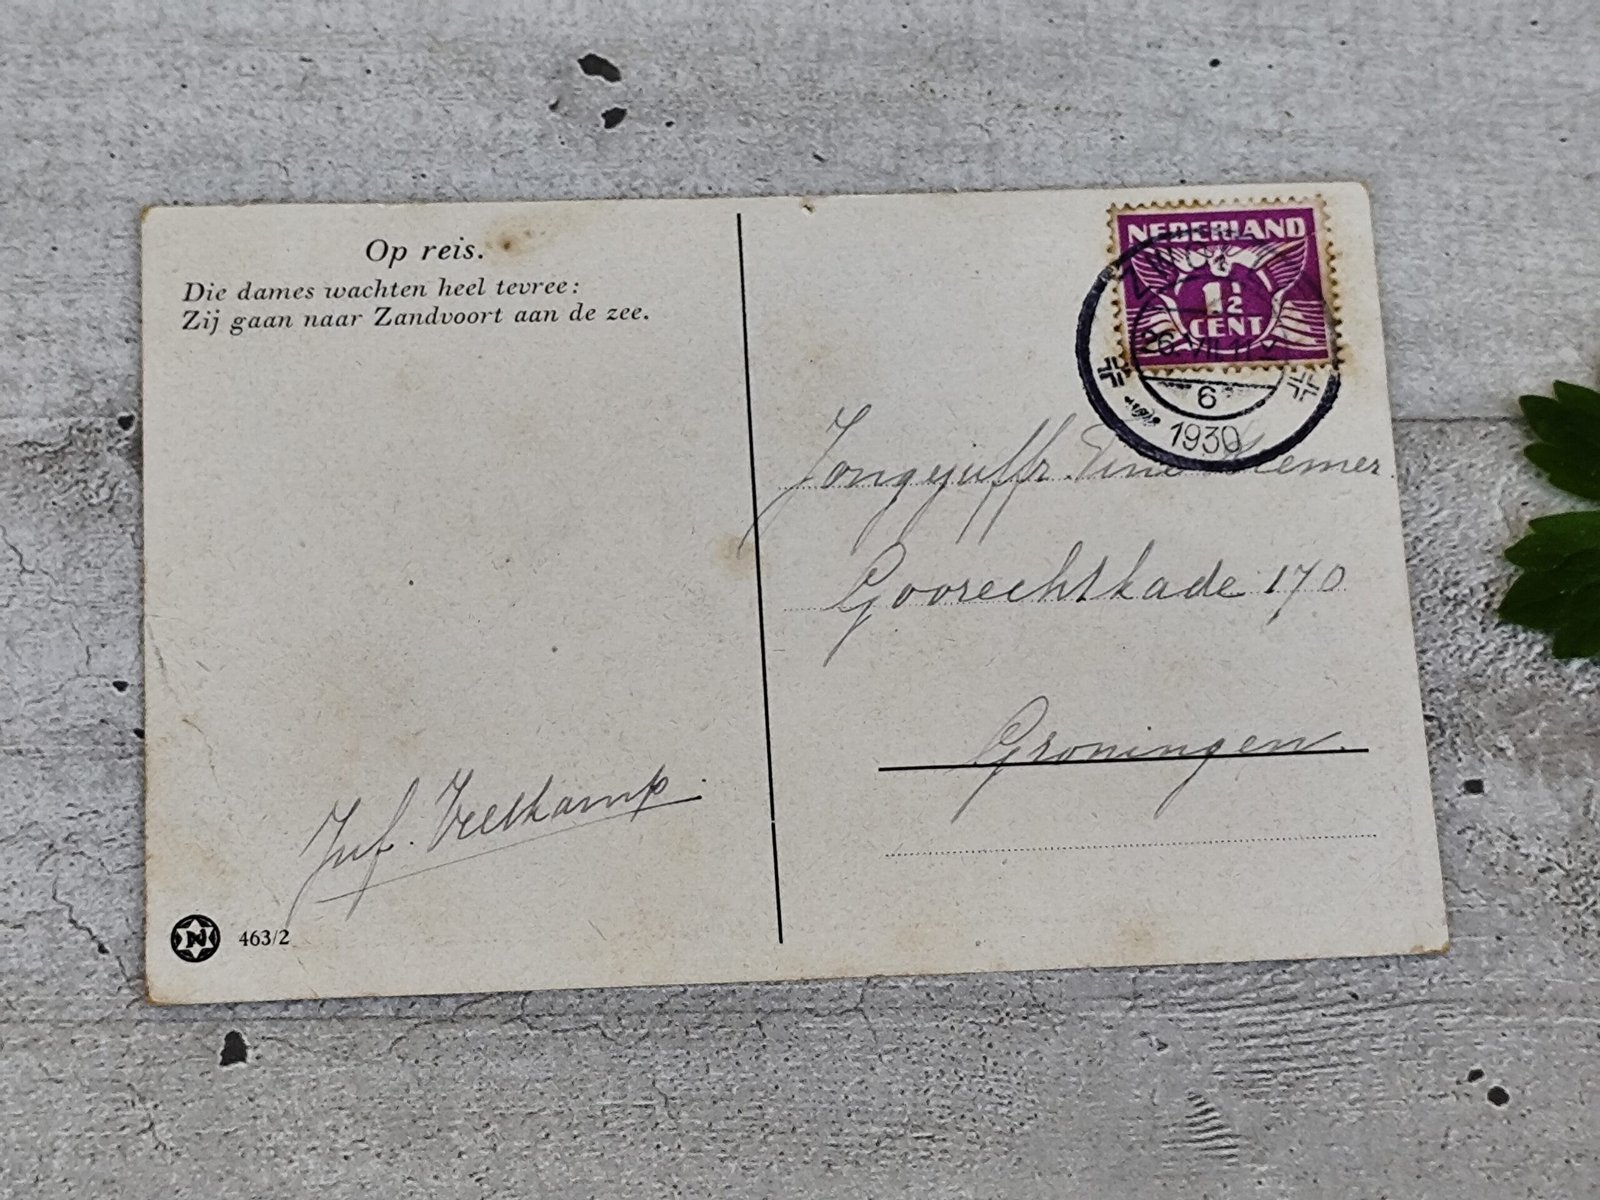 Op reis.
Die dames wachten heel tevree:
Zij gaan naar Zandvoort aan de zee.
Juf. Veltkamp.
N 463/2
NEDERLAND
1½
CENT
26.VII
6
1930
Jongejuffr. Tine
Goorechtkade 170
Groningen.